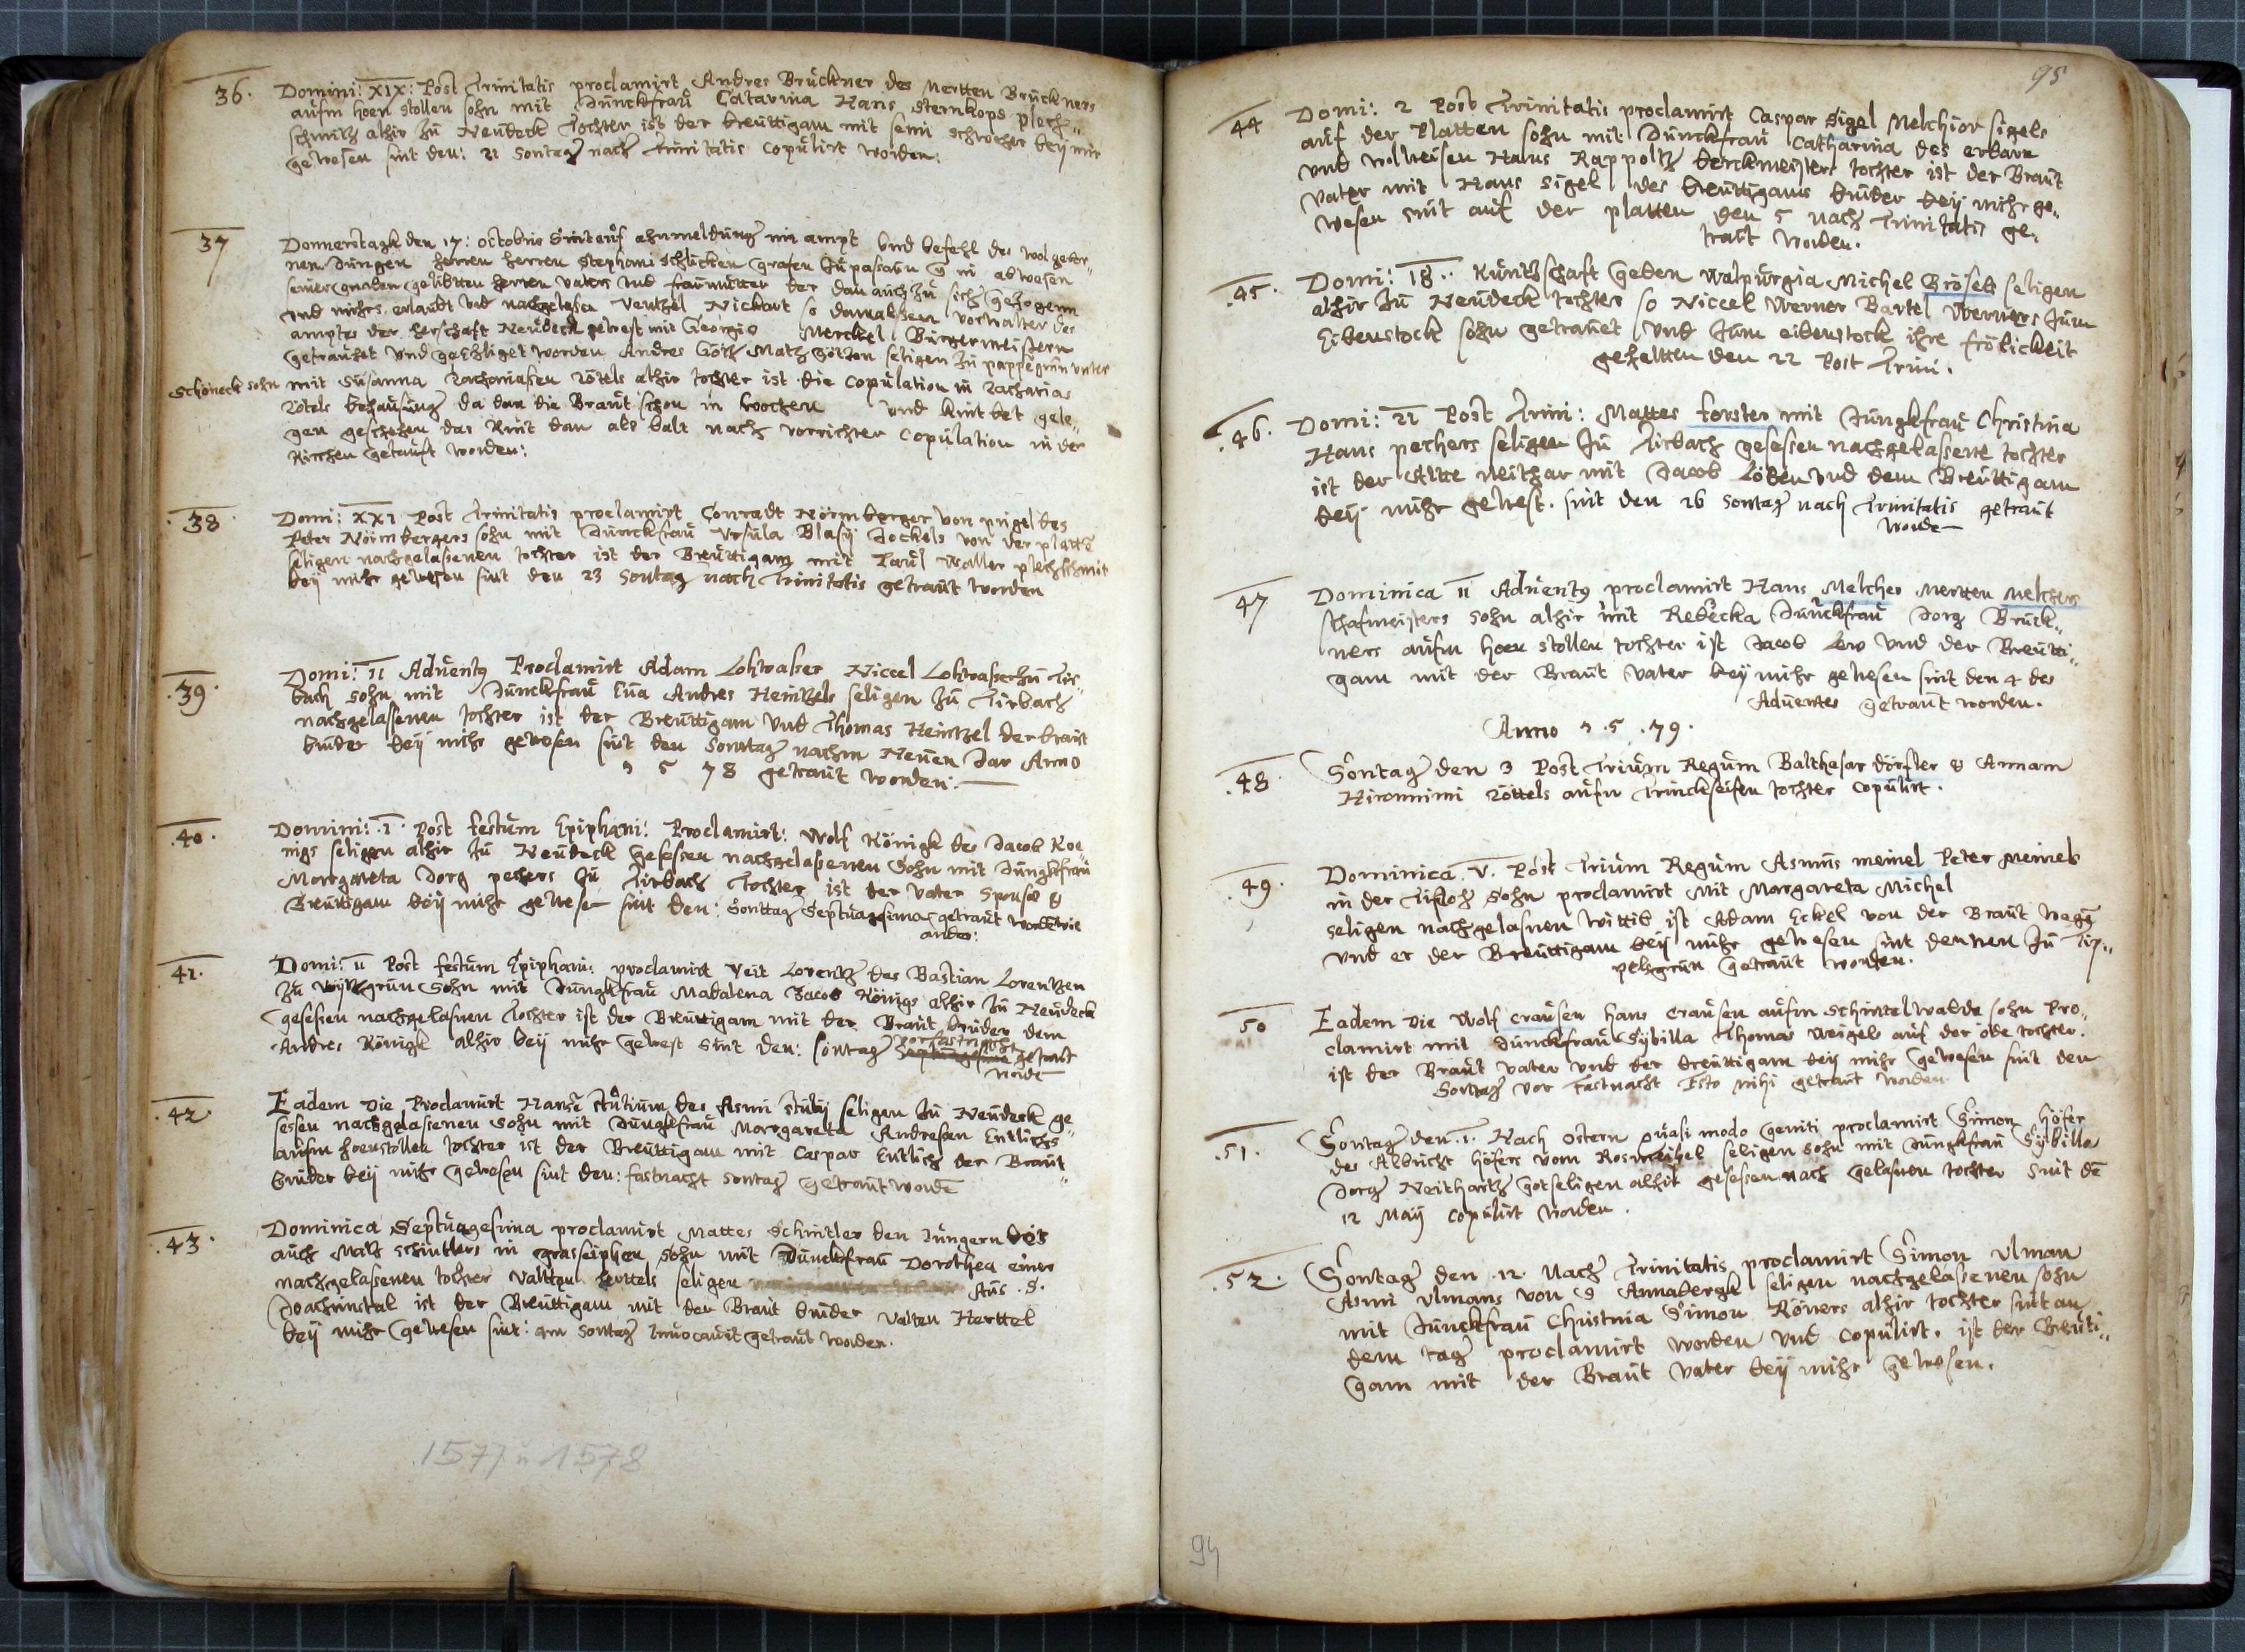 36. Domini: XIX: Post Trinitatis proclamirt Andres Brückner des Mertten Brückners
aufm hoen stollen sohn mit Junckfrau Catarina Hans Sternkops plech„
schmitz alhir zu Neudeck Tochter ist der breuttigam mit seim schweher bey mir
gewesen sint den: 21 Sontag nach Trinitatis Copulirt worden:
37 Donnerstagk den 17: octobris Sint auf ahnmeldung im ampt und befehl des wolgebor„
nen Jungen herren herren Stephani Schlicken Grafen zu passaun in abwesen
seiner gnaden gelibtten herren vaters und fraumutter der dan auch zu sich gezogenn
und mihrs erlaubt und nachgelasen Nickart so damalssen vorwalter des
amptes der herschaft Neudeck gewest mit Georgio Merckel Bürgermeistern
getrauhet und geEhliget worden Andres Götz Matz Götzen seligen zu pappegrün unter
Schöneck sohn mit Susanna Zachariasen Röttels alhir tochter ist die Copulation in Zacharias
Röttels behausung da dan die Braut schon in wochen und kintbet gele„
gen geschehen das Kint dan als balt nach vorrichter Copulation in der
Kirchen getauft worden:
38 Domi: XXI Post Trinitatis proclamirt Conradt Nörmberger von pirgel des
Peter Nörmbergers sohn mit Junckfrau Ursula Blasy Jockels von der platte
seligen nachgelassenen tochter ist der Breuttigam mit Paul Waller plechschmit
bey mihr gewesen sint den 23 Sontag nach Trinitatis getraut worden
39. Domi: II Aduents Proclamirt Adam Lohwasser Niccel Lohwasser zu Tir„
bach sohn mit Junckfrau Eua Andres Heintzels seligen zu Tirbach
nachgelassenen tochter ist der Breuttigam und Thomas Heintzel der braut
bruder bey mihr gewesen sint den Sonntag nachm Neuen Jar Anno
1 5 78 getraut worden:
40. Domini: I Post festum Epiphani: Proclamirt: Wolf Königk des Jacob Koe„
nigs seligen alhir zu Neudeck gesessen nachgelassenen Sohn mit Jungkfrau
Morrgareta Jorg pechers zu Tirbach Tochter ist der Vater Sponsæ &
Breuttigam bey mihr gewesen sint den: Sonttag Septuagesima getraut
41. Domi: II Post festum Epiphani: proclamirt Veit Lorentz des Bastian Lorentzen
zu grün Sohn mit Jungkfrau Madalena Jacob Königs alhir zu Neudeck
gesessen nachgelasnen Tochter ist der Breuttigam mit der Braut bruder dem
Andres Königk alhir bey mihr gewest sint den: sontag vor fastnacht getraut
worde
42. Eadem Die Proclamirt Hanse Stultium des Asmi Stulty seligen zu Neudeck ge„
sessen nachgelassenen sohn mit Jungkfrau Morrgareta Andresen Entlichs
aufm hoenstollen tochter ist der Breuttigam mit Caspar Entlich der Braut
bruder bey mihr gewesen sint den: fastnacht sontag getraut worde
43. Dominica Septuagesima proclamirt Mattes Schintler den Jüngern des
auch Matz schintlers in grasseiphen Sohn mit Junckfrau Dorothea einer
nachgelassenen tochter Valtten herttels seligen Aus .S.
Joachimstal ist der Breuttigam mit der Braut bruder Valten Herttel
bey mihr gewesen sint: am Sontag Invocavit getraut worden.
1577 u 1578
95
44 Domi: 2 Post Trinitatis proclamirt Caspar Sigel Melchior sigels
auf der Platten sohn mit Junckfrau Catharina des erbarn
und wolweisen Hans Rappoltz berckmeisters tochter ist der Braut
Vater mit Hans Sigel des breuttigams bruder bey mihr ge„
wesen sint auf der platten den 5 nach Trinitatis ge„
traut worden.
45. Domi: 18.. Kuntschaft geben Walpurgia Michel Brösels seligen
alhir zu Neudeck tochter so Niccel Werner Bartel Werners zum
Eibenstock sohn getrauet und zum eibenstock ihre frölickeit
gehaltten den 22 Post Trini.
46. Domi: 21 Post Trini: Mattes forster mit Jungkfrau Christina
Hans pechers seligen zu Tirbach gesessen nachgelassene tochter
ist der Altte Neithar mit Jacob Löben und dem Breuttigam
bey mihr gewest. sint den 26 Sontag nach Trinitatis getraut
worde
47 Dominica II Aduents proclamirt Hans Melcher Mertten Melchers
schafmeisters sohn alhir mit Rebecka Junckfrau Jorg Brück„
ners aufm hoen stollen tochter ist Jacob Lew und der Breutti„
gam mit der Braut vater bey mihr gewesen sint den 4 des
Aduentes getraut worden.
Anno 1.5.79.
48. Sontag den 3 Post Trium Regum Balthasar dörfler & Annam
Hironnimi Röttels aufm Trinckseifen tochter Copulirt.
49. Dominica V. Post Trium Regum Asmus meinel Peter Meinels
in der Tifloh Sohn proclamirt Mit Margareta Michel
seligen nachgelasnen wittib ist Adam Eckel von der Braut wege
und er der Breuttigam bey mihr gewesen sint dennen zu Tip„
pelsgrün getraut worden.
50 Eadem Die Wolf Crausen hans Crausen aufm Schintelwalde sohn Pro„
clamirt mit Junckfrau Sybilla Thomas Weigels auf der öde tochter.
ist der Braut vater und der breuttigam bey mihr gewesen sint den
Sontag vor Fastnacht Esto mihi getraut worden.
51. Sontag den .1. Nach Ostern quasi modo geniti proclamirt Simon Höfer
des Albricht höfers vom Rosmeihel seligen Sohn mit Jungkfrau Sybilla
Jorg Neithartz gotseligen alhir gesessen nach gelasnen tochter sint de
12 May Copulirt worden.
52. Sontag den .12. Nach Trinitatis proclamirt Simon Ulman
Asmi Ulmans von S Annabergk seligen nachgelassenen sohn
mit Junckfrau Christina Simon Römers alhir tochter sint an
dem tag proclamirt worden und Copulirt. ist der Breuti„
gam mit der Braut vater bey mihr gewesen.
94